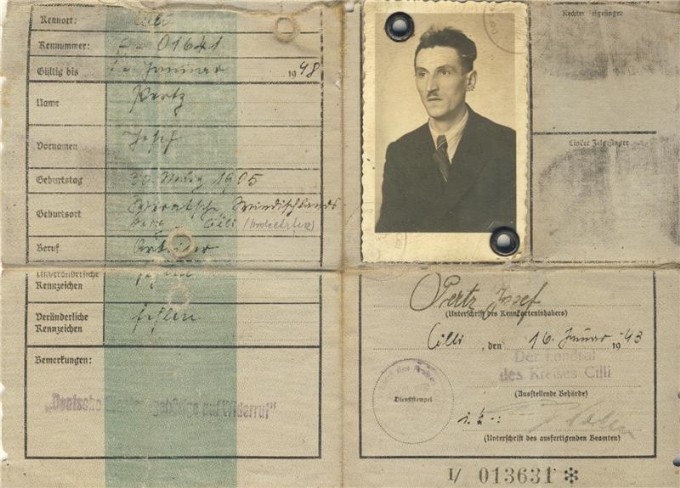 Kennort: Cilli
Kennummer: A 01641
Gültig bis Januar 1948
Name Pertz
Vornamen Josef
Geburtstag 30. 1905
Geburtsort
Cilli
Beruf
Unveränderliche Kennzeichen fehlen
Veränderliche Kennzeichen fehlen
Bemerkungen:
"Deutscher auf Widerruf"
Rechter Zeigefinger
Linker Zeigefinger
Pertz Josef
(Unterschrift des Kennkarteninhabers)
Cilli, den 16. Januar 1943
Der Landrat
des Kreises Cilli
(Ausstellende Behörde)
Dienststempel
(Unterschrift des ausfertigenden Beamten)
I/ 013631 *